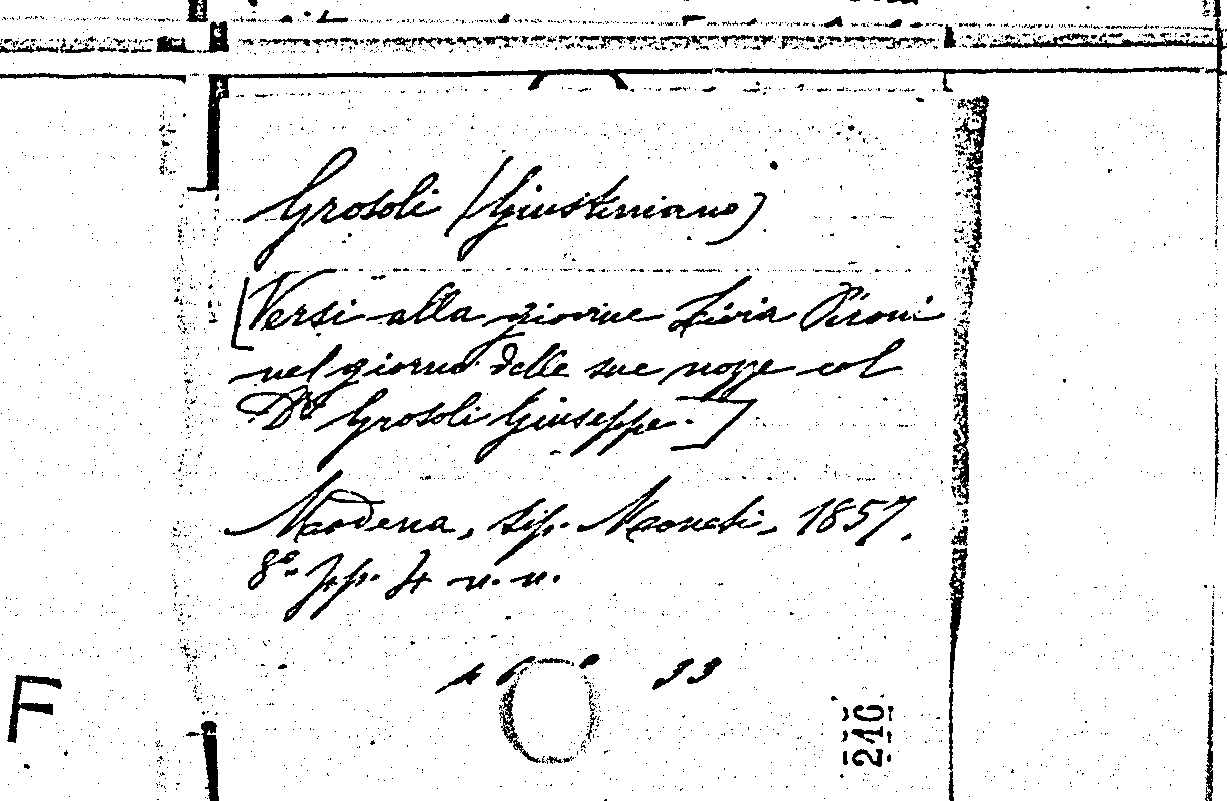 Grosoli (Giustiniano)
[Versi alla giovine Livia Pironi
nel giorno delle sue nozze col
Dr Grosoli Giuseppe.]
Modena, tip. Moneti, 1857.
8°. pp. 4 n. n.
33
F
246